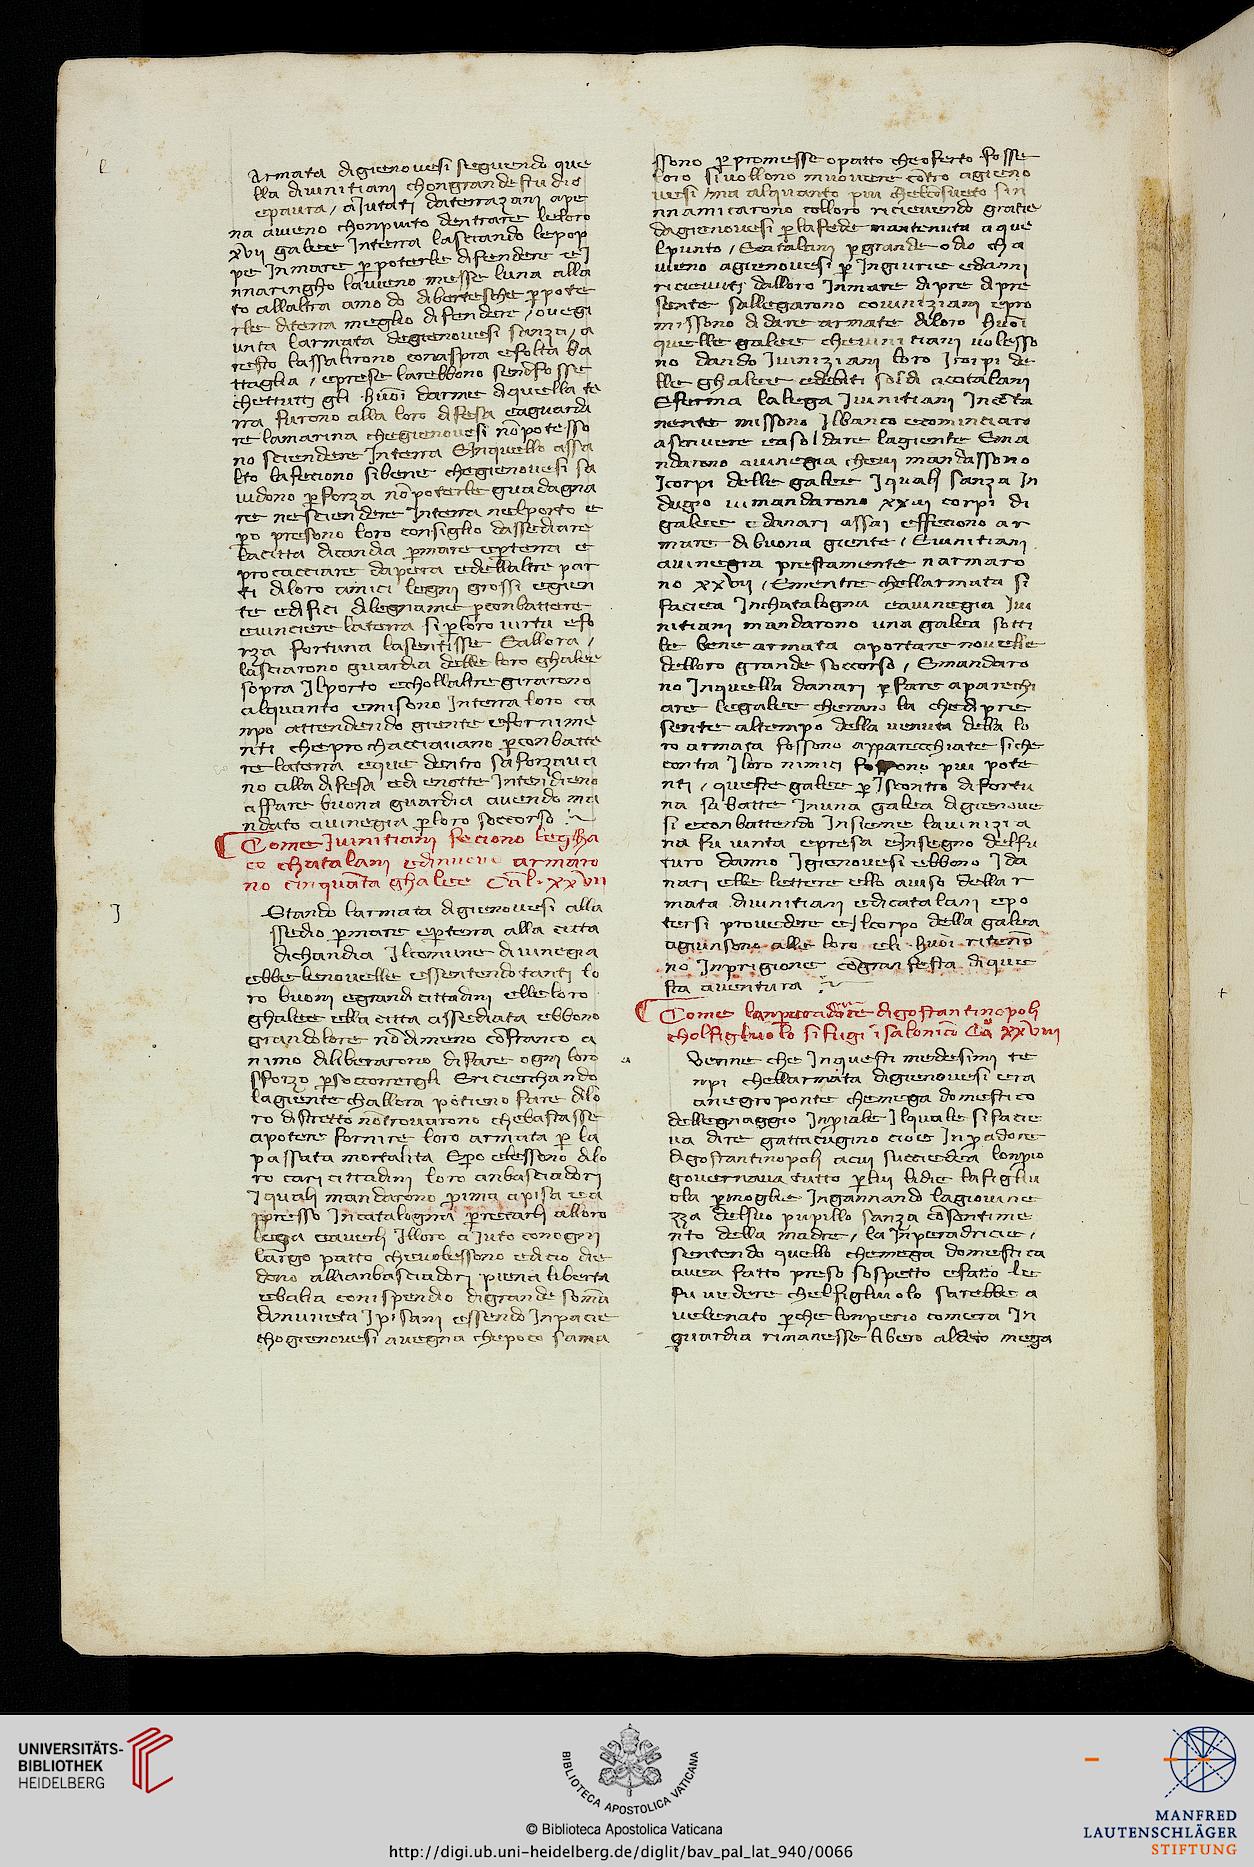 l
armata digienovesi seguendo que
lla diuinitiani chongrande studio
epaura / aJutati daterrazani ape
na aueno chonpiuto dentrare leloro
xvij galeee Interra lasciando lepop
pe Inmare p poterle difendere eJ
nnaringho laueno messe luna alla
to allaltra amodo dibertesche ppote
rle diterra meglio difendere / ouegi
unta larmata degienovesi sanza, a
resto lassalirono conaspra efolta ba
ttaglia / eprese larebbono senofosse
chettutti gli huoi darme diquella te
rra furono alla loro difesa eaguarda
re lamarina chegienovesi nopotesso
no sciendere Interra EInquello assa
lto lafeciono sibene chegienovesi sa
uidono pforza nopoterle guadagna
re nesciendere Interra nelporto e
po presono loro consiglio dassediare
lacitta dicandia pmare epterra e
procacciare dapera edellaltre par
ti diloro amici legni grossi egien
te edifici dilegname pconbattere
euinciere laterra si ploro uirtu efo
rza fortuna lasentisse Eallora /
lasciarono guardia delle loro ghalee
sopra Ilporto echollaltre girarono
alquanto emisono Interra loro ca
npo attendendo giente efornime
nti cheprochacciauano pconbatte
re laterra eque dentro saforzaua
no alla difesa edi enotte Intendieno
affare buona guardia auendo ma
ndato auinegia ploro soccorso
Come Juinitiani feciono legha
co chatalani edinuouo armaro
no cinquata ghalee Cal. xxvij
J
Stando larmata digienovesi alla
ssedio pmare epterra alla citta
dichandia Ilcomune diuinegia
ebbe lenouelle essentendo tanti lo
ro buoni egrandi cittadini elleloro
ghalee ella citta assediata ebbono
grandolore nodimeno cofranco a
nimo diliberarono difare ogni loro
sforzo psoccorrergli Ericierchando
lagiente challora potieno fare dilo
ro distretto notrouarono chebastasse
apotere fornire loro armata p la
passata mortalita Epo elessono dilo
ro cari cittadini loro anbasciadori
Iquali mandarono prima apisa ea
ppresso Incatalogna precarli alloro
lega eauerli Illoro aiuto conogni
largo patto cheuolessono edicio die
dono alli anbasciadori piena liberta
ebalia conispendio digrande soma
dimuneta Ipisani essendo Inpacie
chogienovesi auegna chepoco sama
ssono p promesse opatto cheoferto fosse
loro siuollono muouere cotro agieno
uesi /ma alquanto piu chelcosueto sin
nnamicarono colloro riceuendo gratie
dagienovesi plafede mantenuta aque
lpunto / Ecatalani pgrande odio cha
uieno agienovesi p Ingiurie edanni
riceuuti dalloro Inmare dipre dipre
sente sallegarono couiniziani epro
missono didare armate diloro huoi
quelle galee cheuinitiani uolesso
no dando Juiniziani loro Icorpi de
lle ghalee edebiti soldi acatalani
Eferma lalega Juinitiani Incota
nente missono Ilbanco ecominciaro
ascriuere easoldare lagiente Ema
ndarono auinegia cheui mandassono
Icorpi delle galee Iquali sanza In
dugio ui mandarono xxiij corpi di
galee edanari assai effeciono ar
mare dibuona giente / Euinitiani
auinegia prestamente narmaro
no xxvij / Ementre chellarmata si
faciea Inchatalogna eauinegia Jui
nitiani mandarono una galea sotti
le bene armata aportare nouelle
delloro grande soccorso / Emandaro
no Inquella danari pfare aparechi
are legalee cherano la chedipre
sente altempo della uenuta della lo
ro armata fossono apparecchiate siche
contra Iloro nimici fossono piu pote
nti / queste galee p Iscontro difortu
na sabatte Inuna galea digienoue
si econbattendo Insieme lauinizia
na fu uinta epresa eInsegno delfu
turo danno Igienovesi ebbono Ida
nari elle lettere ello auiso dellar
mata diuinitiani edicatalani epo
tersi prouedere eJlcorpo della galea
agiunsono alle loro eli huoi riteno
no Inprigione cogran festa dique
sta auentura
Come lanperadore digostantinopoli
cholfigliuolo sifugi i salonico Ca xxviij
Venne che Inquesti medesimi te
npi chellarmata digienovesi era
anegroponte chemega domestico
dellegnaggio Inpiale Ilquale sifacie
ua dire gattacugino cioe Inpadore
digostantinopoli acui succiedea lonpio
gouernaua tutto plui tidie lafigliu
ola pmoglie Ingannando lagiouine
zza delsuo pupillo sanza cosentime
nto della madre / la Inperadricie /
sentendo quello chemega domestica
auea fatto preso sospetto efatto le
fu uedere chelfigliuolo sarebbe a
uelenato pche lonperio comera In
guardia rimanesse libero aldeto mega
UNIVERSITÄTS-
BIBLIOTHEK
HEIDELBERG
BIBLIOTECA APOSTOLICA VATICANA
© Biblioteca Apostolica Vaticana
http://digi.ub.uni-heidelberg.de/diglit/bav_pal_lat_940/0066
MANFRED
LAUTENSCHLÄGER
STIFTUNG